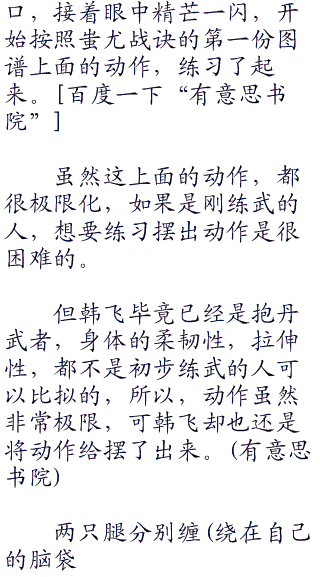 口，接着眼中精芒一闪，开
始按照蚩尤战诀的第一份图
谱上面的动作，练习了起
来。[百度一下“有意思书
院”]
虽然这上面的动作，都
很极限化，如果是刚练武的
人，想要练习摆出动作是很
困难的。
但韩飞毕竟已经是抱丹
武者，身体的柔韧性，拉伸
性，都不是初步练武的人可
以比拟的，所以，动作虽然
非常极限，可韩飞却也还是
将动作给摆了出来。(有意思
书院)
两只腿分别缠(绕在自己
的脑袋